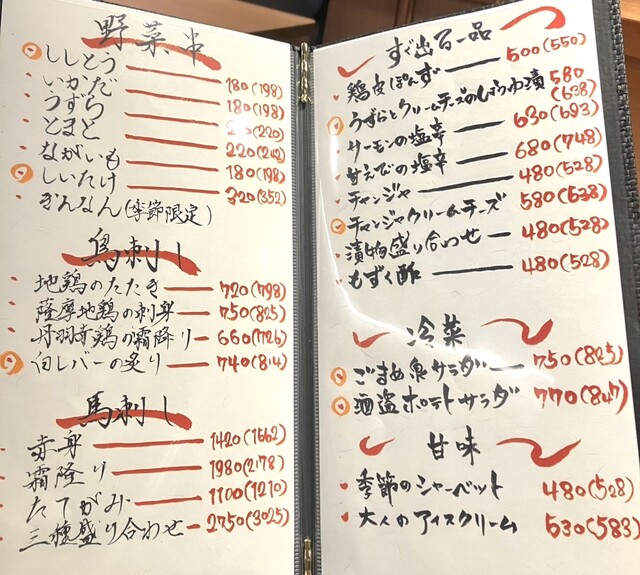 野菜串
ししとう 180(198)
いかだ 180(198)
うずら (220)
とまと 220(242)
ながいも 180(198)
しいたけ 320(352)
ぎんなん(季節限定)
鳥刺し
地鶏のたたき 720(798)
薩摩地鶏の刺身 750(825)
丹羽赤鶏の霜降り 660(726)
白レバーの炙り 740(814)
馬刺し
赤身 1420(1662)
霜降り 1980(2178)
たてがみ 1100(1210)
三種盛り合わせ 2750(3025)
すぐ出る一品
鶏皮ぽんず 500(550)
うずらとクリームチーズのしょうゆ漬 580(638)
サーモンの塩辛 630(693)
甘えびの塩辛 680(748)
チャンジャ 480(528)
チャンジャクリームチーズ 580(638)
漬物盛り合わせ 480(528)
もずく酢 480(528)
冷菜
ごまめ泉サラダ 750(825)
酒盗ポテトサラダ 770(847)
甘味
季節のシャーベット 480(528)
大人のアイスクリーム 530(583)